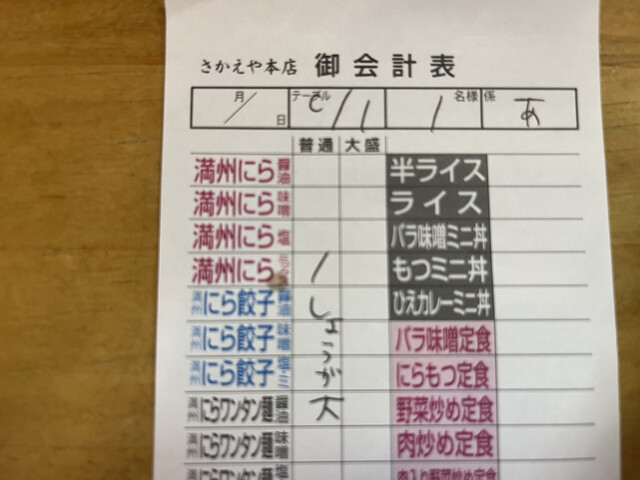 さかえや本店 御会計表
月/日 テーブル C/11 1名様 係 あ
普通 大盛
満州にら醤油 半ライス
満州にら味噌 ライス
満州にら塩 バラ味噌ミニ丼
満州にらミックス / もつミニ丼
満州にら餃子醤油 しょうが大 ひえカレーミニ丼
満州にら餃子味噌 バラ味噌定食
満州にら餃子塩・ミ にらもつ定食
満州にらワンタン麺醤油 野菜炒め定食
満州にらワンタン麺味噌 肉炒め定食
満州にらワンタン麺塩 肉入り野菜炒め定食